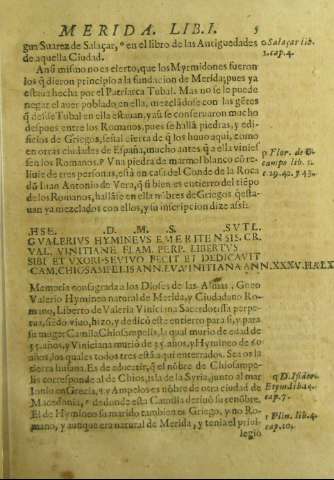 MERIDA. LIB. I. 5
gun Suarez de Salaçar, o en el libro de las Antiguedades
de aquella Ciudad.
o Salaçar lib.
1. cap. 4.
Anſi miſmo no es cierto, que los Myrmidones fueron
los q̃ dieron principio a la fundacion de Merida; pues ya
eſtaua hecha por el Patriarca Tubal. Mas no ſe le puede
negar el auer poblado en ella, mezclãdoſe con las gẽtes
q̃ deſde Tubal en ella eſtauan, y aſsi ſe conſeruaron mucho
deſpues entre los Romanos, pues ſe hallã piedras, y edi-
ficios de Griegos, ſeñal cierta de q̃ los huuo aqui, como
en otras ciudades de Eſpaña, mucho antes q̃ a ella vinieſ
ſen los Romanos. P Vna piedra de marmol blanco cõ re-
p Flor. de O-
campo lib. 1.
c. 39. 42. y 43.
lieue de tres perſonas, eſtà en caſa del Conde de la Roca
dõ Iuan Antonio de Vera, q̃ ſi bien es entierro del tiẽpo
de los Romanos, hallãſe en ella nõbres de Griegos q̃ eſta-
uan ya mezclados con ellos, y ſu inſcripcion dize aſsi.
HSE. D. M. S. SVTL.
G VALERIVS HYMINEVS EMERITENSIS. CR.
VAL. VINITIANE FLAM. PERP. LIBERTVS
SIBI ET VXORI SEVIVO FECIT ET DEDICAVIT
CAM. CHIOSAMPELIS ANN. LV. VINITIANA ANN. XXXV. H & LX
Memoria conſagrada a los Dioſes de las Almas. Gneo
Valerio Hymineo natural de Merida, y Ciudadano Ro-
mano, Liberto de Valeria Viniciana Sacerdotiſſa perpe-
tua, ſiẽdo viuo, hizo, y dedicò eſte entierro para ſi, y para
ſu muger Camila Chioſampelis, la qual murio de edad de
55. años, y Viniciana murio de 35. años, y Hymineo de 60
años, los quales todos tres eſtã aqui enterrados. Sea os la
tierra liuiana. Es de aduertir, q̃ el nõbre de Chioſampe-
lis correſponde al de Chios, iſla de la Syria, junto al mar
q D. Iſidor.
Etym. lib. 14.
cap. 7.
Ionio en Grecia, q y Ampelos es nõbre de otra ciudad de
Macedonia, r de donde eſta Camila deriuò ſu renõbre.
r Plin. lib. 4.
cap. 10.
El de Hymineo ſu marido tambien es Griego, y no Ro-
mano, y aunque era natural de Merida, y tenia el priui-
legio